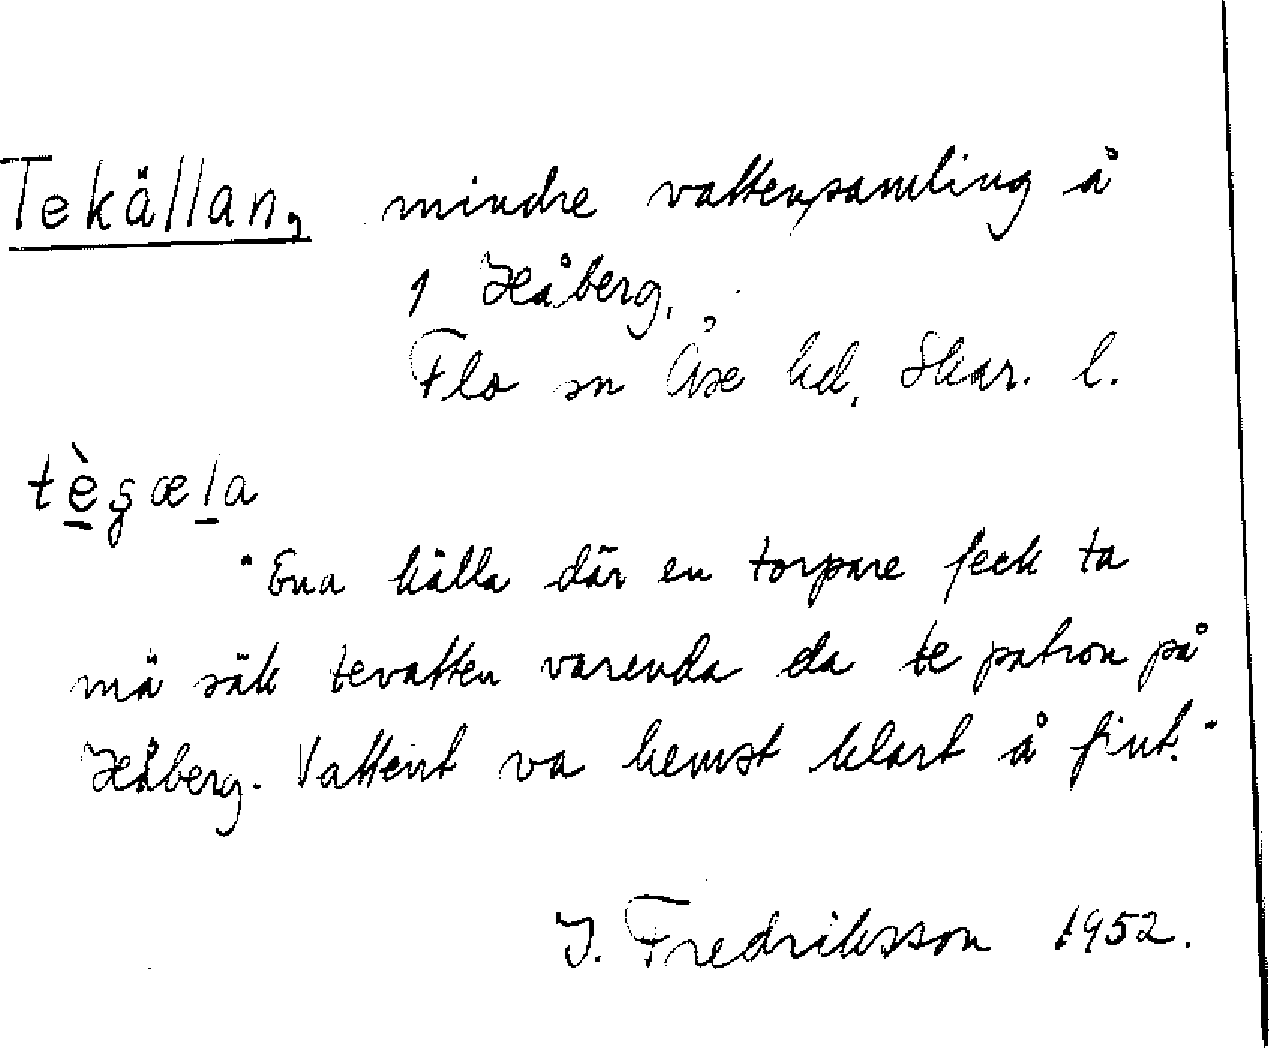 Tekällan, mindre vattensamling å
1 Håberg,
Flo sn Åse hd, Skar. l.
tègæla
"Ena källa där en torpare feck ta
mä säk tevatten varenda da te patron på
Håberg. Vattent va hemst klart å fint."
J. Fredriksson 1952.